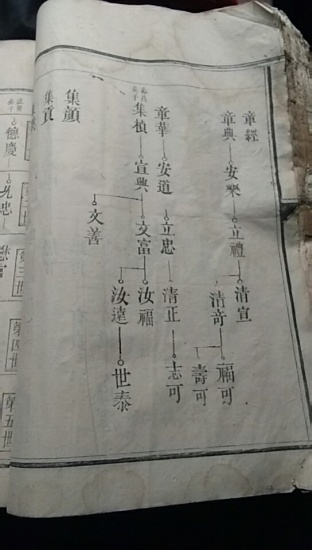 童經
童典 安樂 立禮 清宣
清奇 福可
壽可
童華 安道 立忠 清正 志可
集楨 宣興 文富 汝福
汝遠 世泰
文善
集顏
集賁
德慶
第三世
第四世
第五世